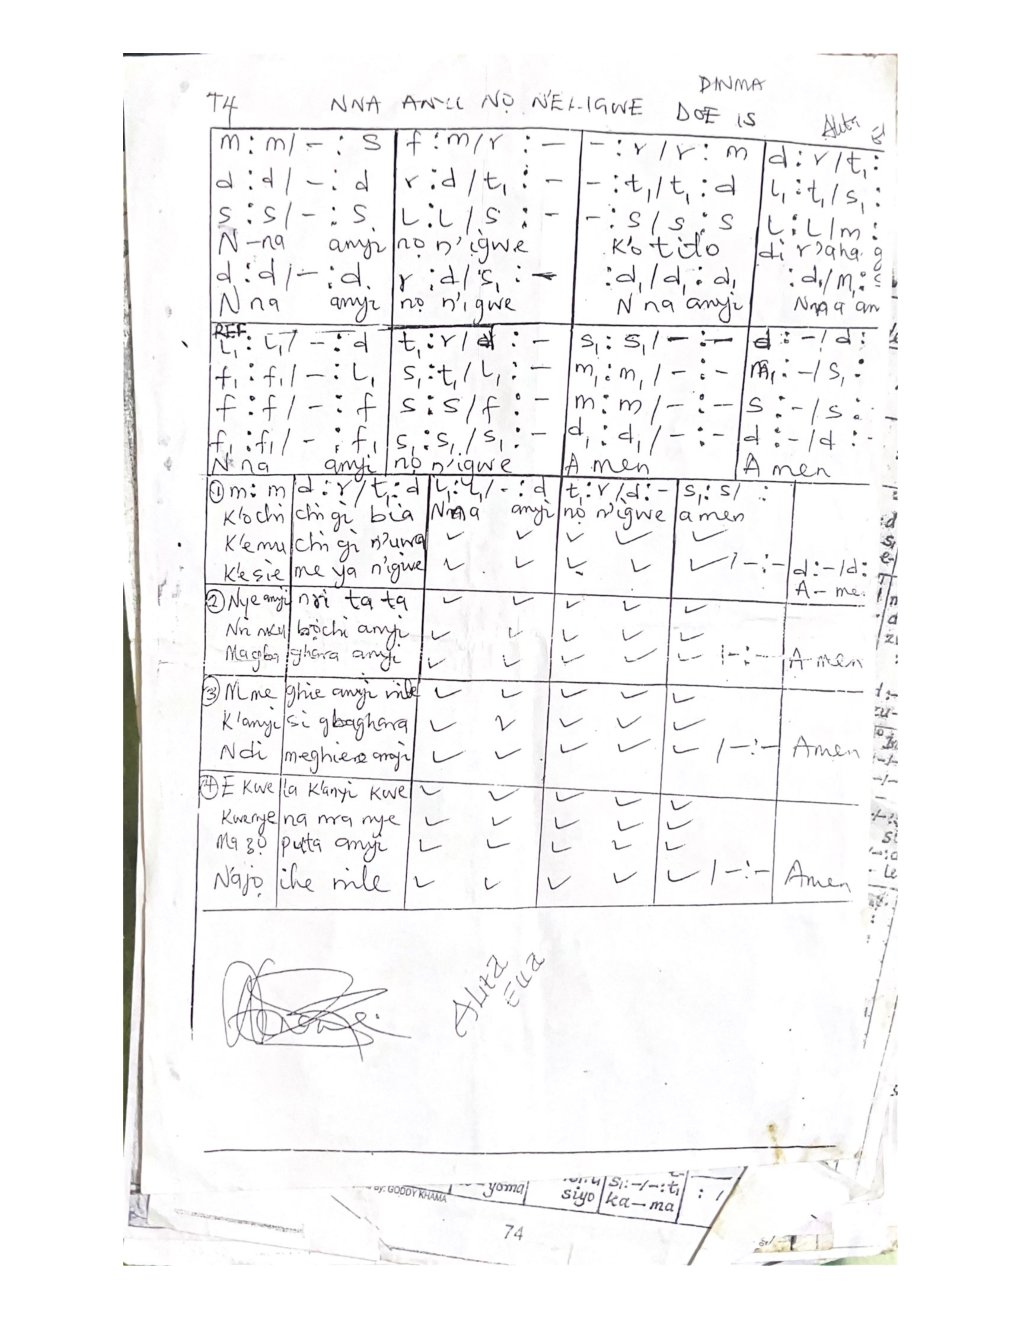 74 NNA ANYI NỌ N'ELIGWE DINMA DOE IS
m : m / - : s | f : m / r : - | - : r / r : m | d : r / t₁ :
d : d / - : d | r : d / t₁ : - | - : t₁ / t₁ : d | l₁ : t₁ / s₁ :
s : s / - : s | L : L / s : - | - : s / s : s | L : L / m :
N-na anyị nọ n'ìgwe K'o tito di r'aha
d : d / - : d. | r : d / s₁ : - | : d₁ / d₁ : d₁ | : d₁ / m₁ :
N na anyị nọ n'igwe N na anyị Nna an
REF
t₁ : t₁ / - : d | t₁ : r / d : - | s₁ : s₁ / - : - | d : - / d :
f₁ : f₁ / - : L₁ | s₁ : t₁ / L₁ : - | m₁ : m₁ / - : - | m₁ : - / s₁ :
f : f / - : f | s : s / f : - | m : m / - : - | s : - / s :
f₁ : f₁ / - : f₁ | s₁ : s₁ / s₁ : - | d₁ : d₁ / - : - | d : - / d : -
N na anyị nọ n'igwe A men A men
① m : m | d : r / t₁ : d | L₁ : L₁ / - : d | t₁ : r / d : - | s₁ : s / :
K'ochi chi gị bia Nna anyị nọ n'ìgwe amen
K'emu chi gị n'uwa ✓ ✓ ✓ ✓ ✓
K'esie me ya n'igwe ✓ ✓ ✓ ✓ ✓ / - : - d : - / d :
A - me
② Nye anyị nri ta ta ✓ ✓ ✓ ✓ ✓
Nri nku bọchi anyị ✓ ✓ ✓ ✓ ✓
Magba ghara anyị ✓ ✓ ✓ ✓ ✓ / - : - A-men
③ N'me ghie anyị nile ✓ ✓ ✓ ✓ ✓
K'anyi si gbaghara ✓ ✓ ✓ ✓ ✓
Ndi meghiere anyị ✓ ✓ ✓ ✓ ✓ / - : - Amen
④ E Kwe la K'anyị Kwe ✓ ✓ ✓ ✓ ✓
Kwenye na nra nye ✓ ✓ ✓ ✓ ✓
Ma zọ pụta anyị ✓ ✓ ✓ ✓ ✓
N'ajọ ihe nile ✓ ✓ ✓ ✓ ✓ / - : - Amen
Aluta
Eua
GODDY KHAMA
yoma
siyo
s₁ : - / - : t₁
ka - ma
74